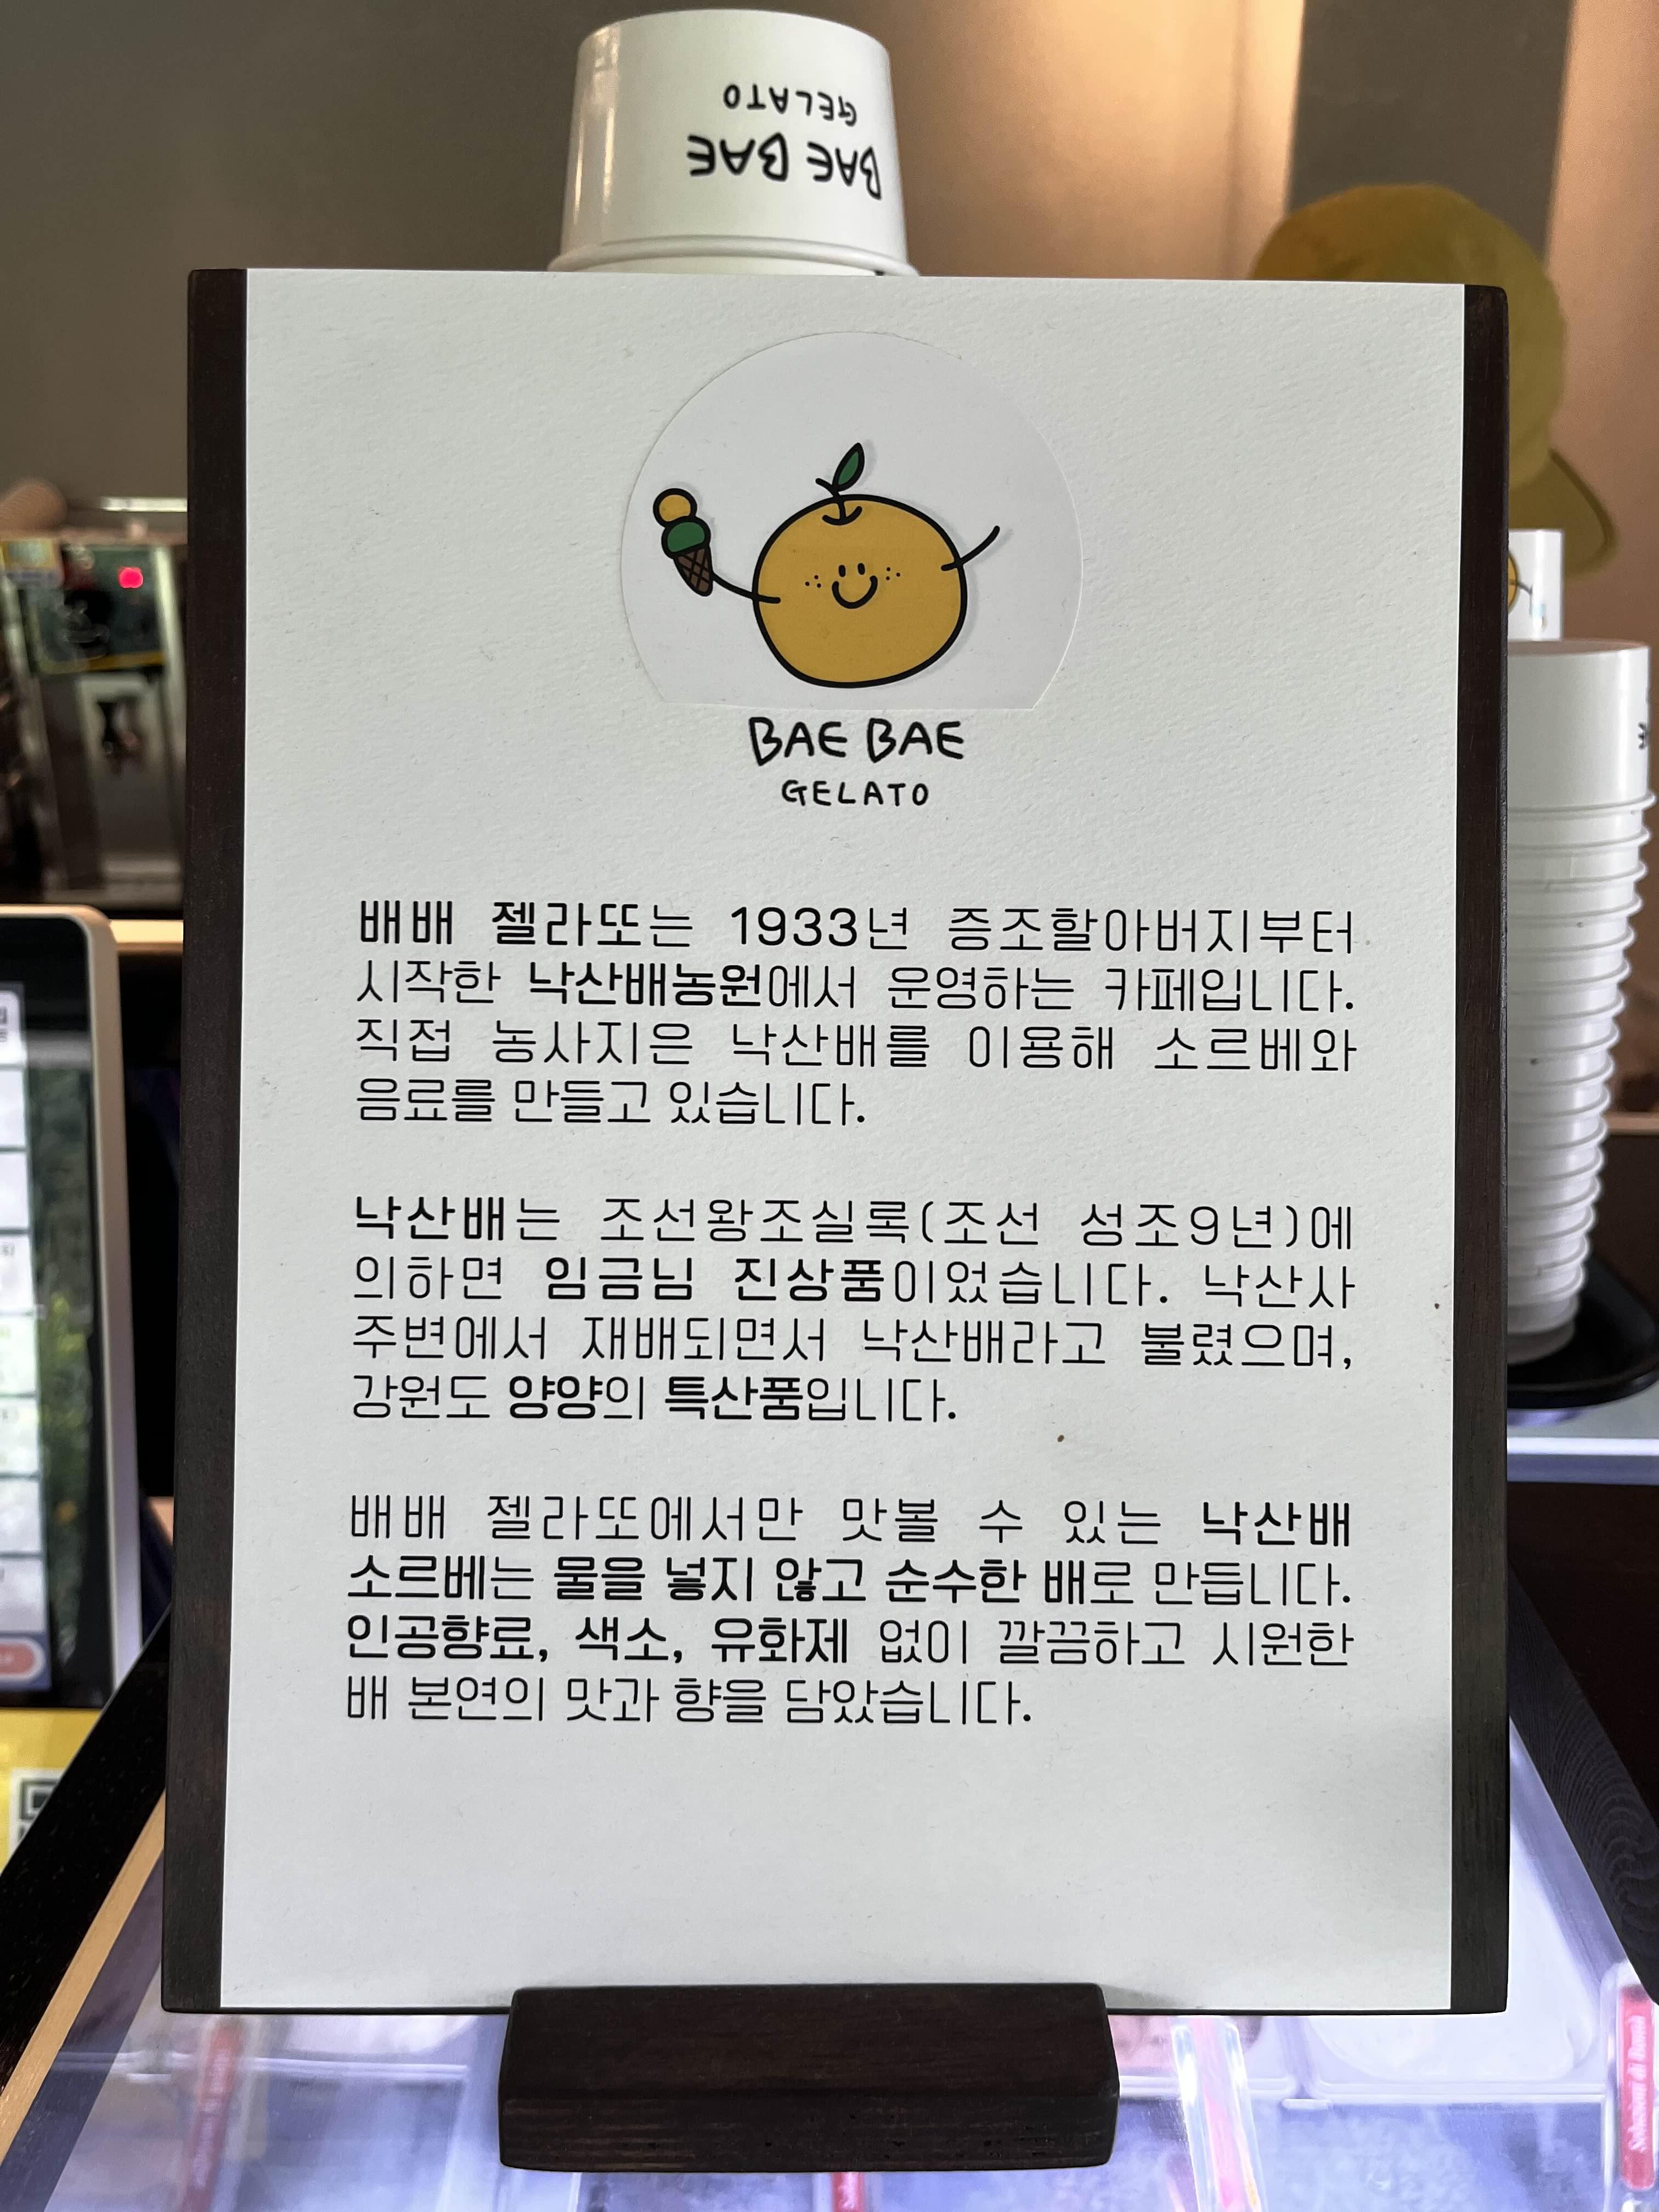 BAE BAE
GELATO
BAE BAE
GELATO
배배 젤라또는 1933년 증조할아버지부터
시작한 낙산배농원에서 운영하는 카페입니다.
직접 농사지은 낙산배를 이용해 소르베와
음료를 만들고 있습니다.
낙산배는 조선왕조실록(조선 성조9년)에
의하면 임금님 진상품이었습니다. 낙산사
주변에서 재배되면서 낙산배라고 불렸으며,
강원도 양양의 특산품입니다.
배배 젤라또에서만 맛볼 수 있는 낙산배
소르베는 물을 넣지 않고 순수한 배로 만듭니다.
인공향료, 색소, 유화제 없이 깔끔하고 시원한
배 본연의 맛과 향을 담았습니다.